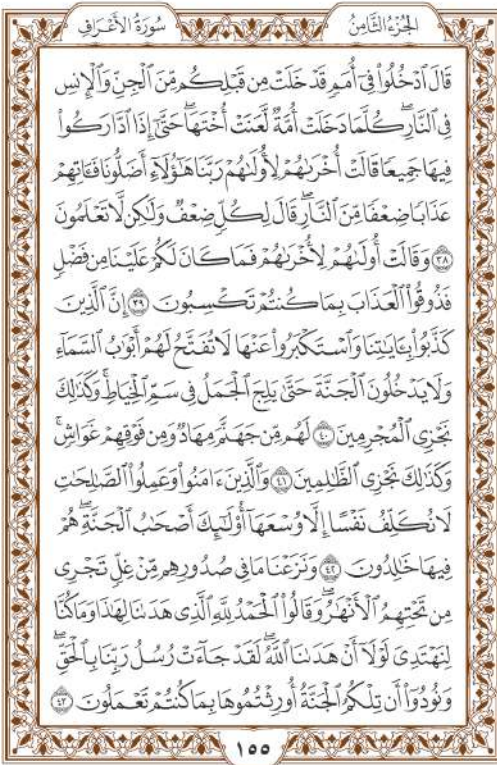 الجُزْءُ الثَّامِنُ
سُورَةُ الأَعْرَافِ
قَالَ ٱدْخُلُوا۟ فِىٓ أُمَمٍ قَدْ خَلَتْ مِن قَبْلِكُم مِّنَ ٱلْجِنِّ وَٱلْإِنسِ
فِى ٱلنَّارِ ۖ كُلَّمَا دَخَلَتْ أُمَّةٌ لَّعَنَتْ أُخْتَهَا ۖ حَتَّىٰٓ إِذَا ٱدَّارَكُوا۟
فِيهَا جَمِيعًا قَالَتْ أُخْرَىٰهُمْ لِأُولَىٰهُمْ رَبَّنَا هَٰٓؤُلَآءِ أَضَلُّونَا فَـَٔاتِهِمْ
عَذَابًا ضِعْفًا مِّنَ ٱلنَّارِ ۖ قَالَ لِكُلٍّ ضِعْفٌ وَلَٰكِن لَّا تَعْلَمُونَ
٣٨ وَقَالَتْ أُولَىٰهُمْ لِأُخْرَىٰهُمْ فَمَا كَانَ لَكُمْ عَلَيْنَا مِن فَضْلٍ
فَذُوقُوا۟ ٱلْعَذَابَ بِمَا كُنتُمْ تَكْسِبُونَ ٣٩ إِنَّ ٱلَّذِينَ
كَذَّبُوا۟ بِـَٔايَٰتِنَا وَٱسْتَكْبَرُوا۟ عَنْهَا لَا تُفَتَّحُ لَهُمْ أَبْوَٰبُ ٱلسَّمَآءِ
وَلَا يَدْخُلُونَ ٱلْجَنَّةَ حَتَّىٰ يَلِجَ ٱلْجَمَلُ فِى سَمِّ ٱلْخِيَاطِ ۚ وَكَذَٰلِكَ
نَجْزِى ٱلْمُجْرِمِينَ ٤٠ لَهُم مِّن جَهَنَّمَ مِهَادٌ وَمِن فَوْقِهِمْ غَوَاشٍ ۚ
وَكَذَٰلِكَ نَجْزِى ٱلظَّٰلِمِينَ ٤١ وَٱلَّذِينَ ءَامَنُوا۟ وَعَمِلُوا۟ ٱلصَّٰلِحَٰتِ
لَا نُكَلِّفُ نَفْسًا إِلَّا وُسْعَهَآ أُو۟لَٰٓئِكَ أَصْحَٰبُ ٱلْجَنَّةِ ۖ هُمْ
فِيهَا خَٰلِدُونَ ٤٢ وَنَزَعْنَا مَا فِى صُدُورِهِم مِّنْ غِلٍّ تَجْرِى
مِن تَحْتِهِمُ ٱلْأَنْهَٰرُ ۖ وَقَالُوا۟ ٱلْحَمْدُ لِلَّهِ ٱلَّذِى هَدَىٰنَا لِهَٰذَا وَمَا كُنَّا
لِنَهْتَدِىَ لَوْلَآ أَنْ هَدَىٰنَا ٱللَّهُ ۖ لَقَدْ جَآءَتْ رُسُلُ رَبِّنَا بِٱلْحَقِّ ۖ
وَنُودُوٓا۟ أَن تِلْكُمُ ٱلْجَنَّةُ أُورِثْتُمُوهَا بِمَا كُنتُمْ تَعْمَلُونَ ٤٣
١٥٥